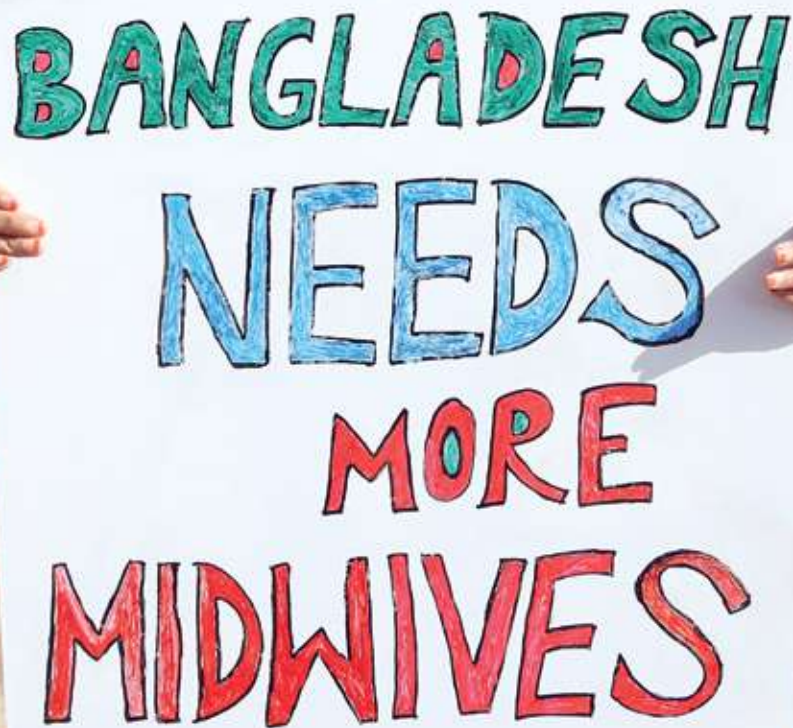 BANGLADESH
NEEDS
MORE
MIDWIVES